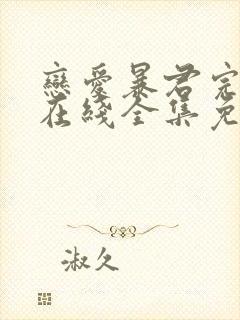 戀愛暴君完
在綫全集免
淑久